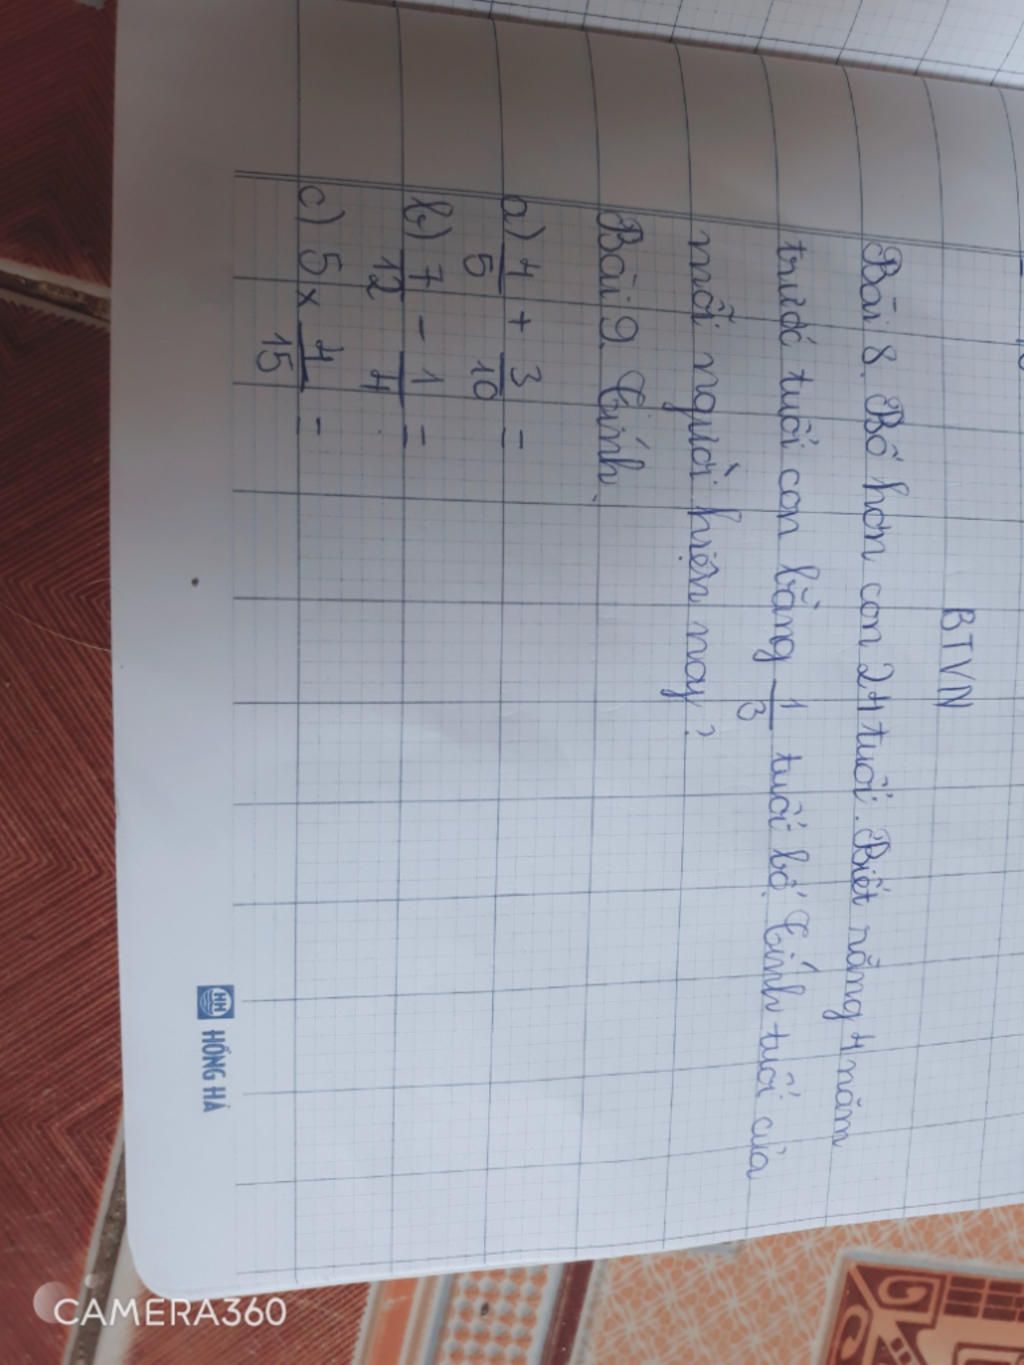 BTVN
Bài 8. Bố hơn con 24 tuổi. Biết rằng 4 năm
trước tuổi con bằng 1/3 tuổi bố. Tính tuổi của
mỗi người hiện nay?
Bài 9. Tính.
a) 4/5 + 3/10 =
b) 7/12 - 1/4 =
c) 5 × 4/15 =
HH HỒNG HÀ
CAMERA360